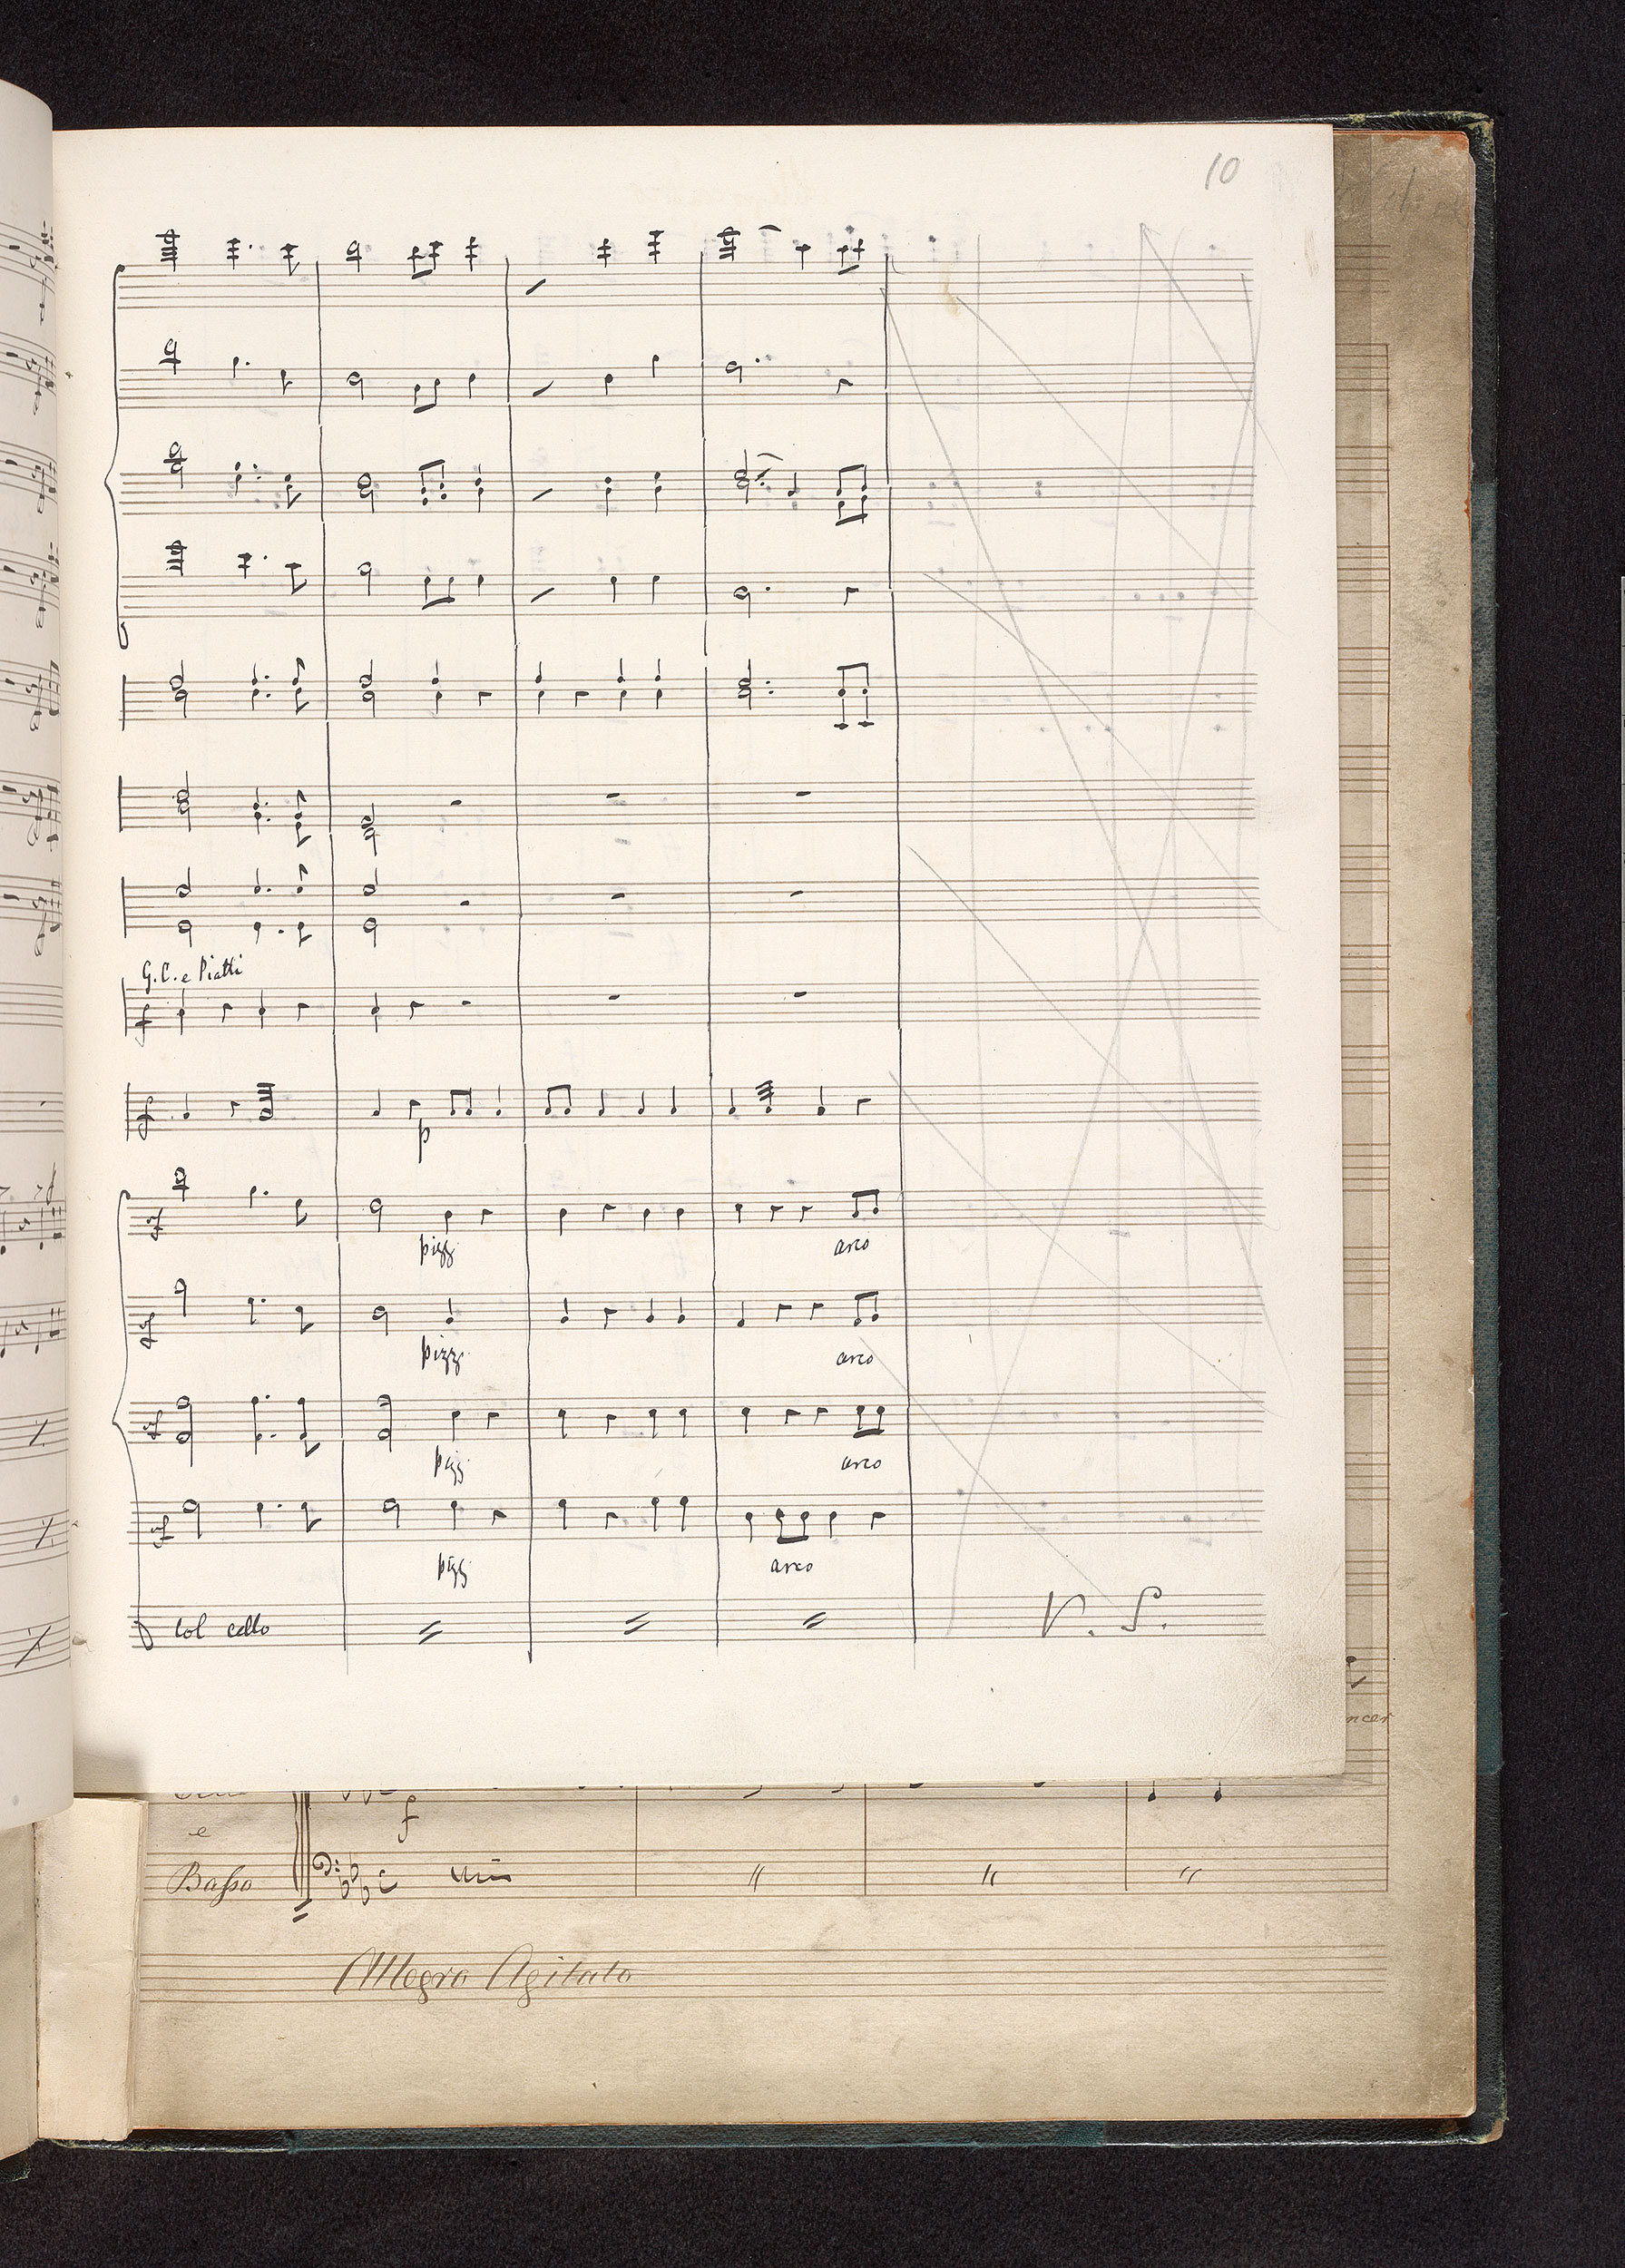 10
G.C. e Piatti
f
f
p
sf
pizz
arco
sf
pizz
arco
sf
pizz
arco
sf
pizz
arco
Col cello
V. S.
f
e
Basso
Allegro Agitato